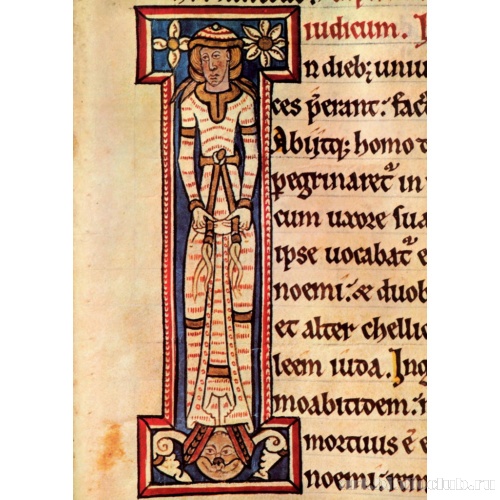 iudicum. I
n dieb; uniu
ces p̄erant. fac̄
Abiitq; homo
pegrinaret᷑ in
cum uxore sua
ipse uocabat᷑ e
noemi. & duob
et alter chelli
leem iuda. Ing
moabitidem.
mortuus ē e
noemi.